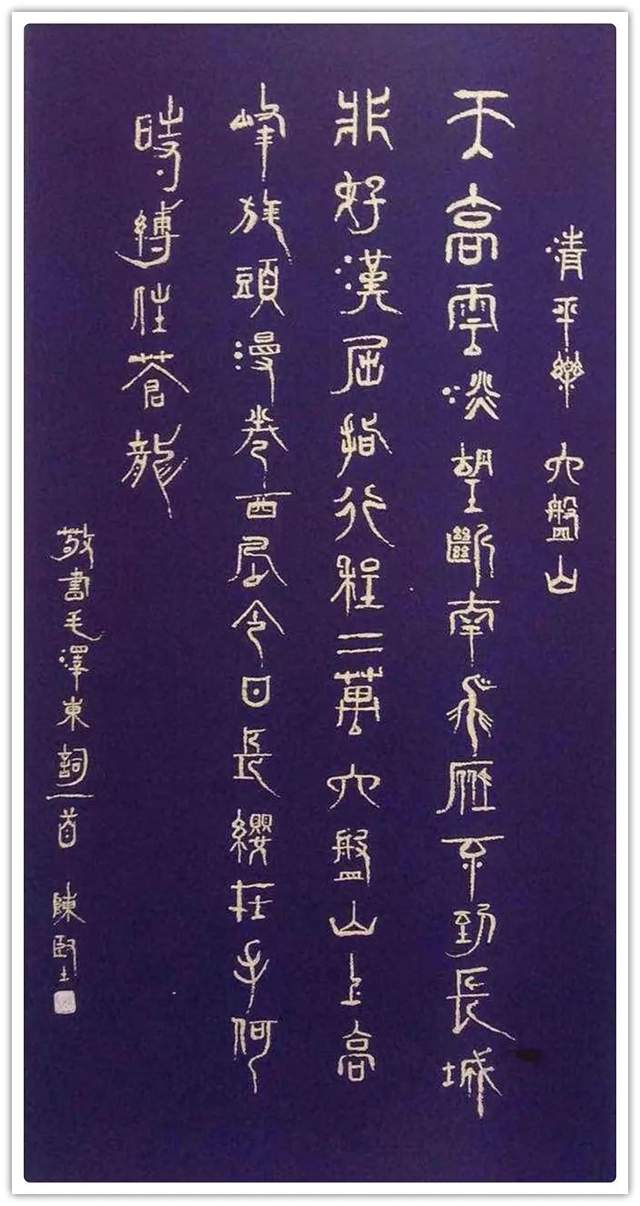 清平樂 六盤山
天高雲淡望斷南飛雁不到長城
非好漢屈指行程二萬六盤山上高
峰旄頭漫卷西風今日長纓在手何
時縛住蒼龍
敬書毛澤東詞一首 陳堅